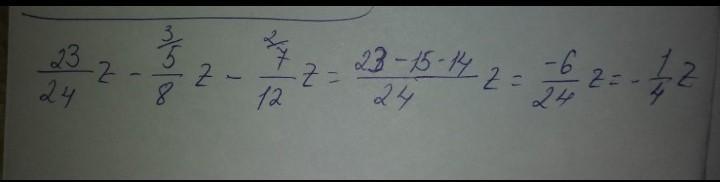 23/24 z - 5/8 ^3/ z - 7/12 ^2/ z = (23 - 15 - 14)/24 z = -6/24 z = - 1/4 z